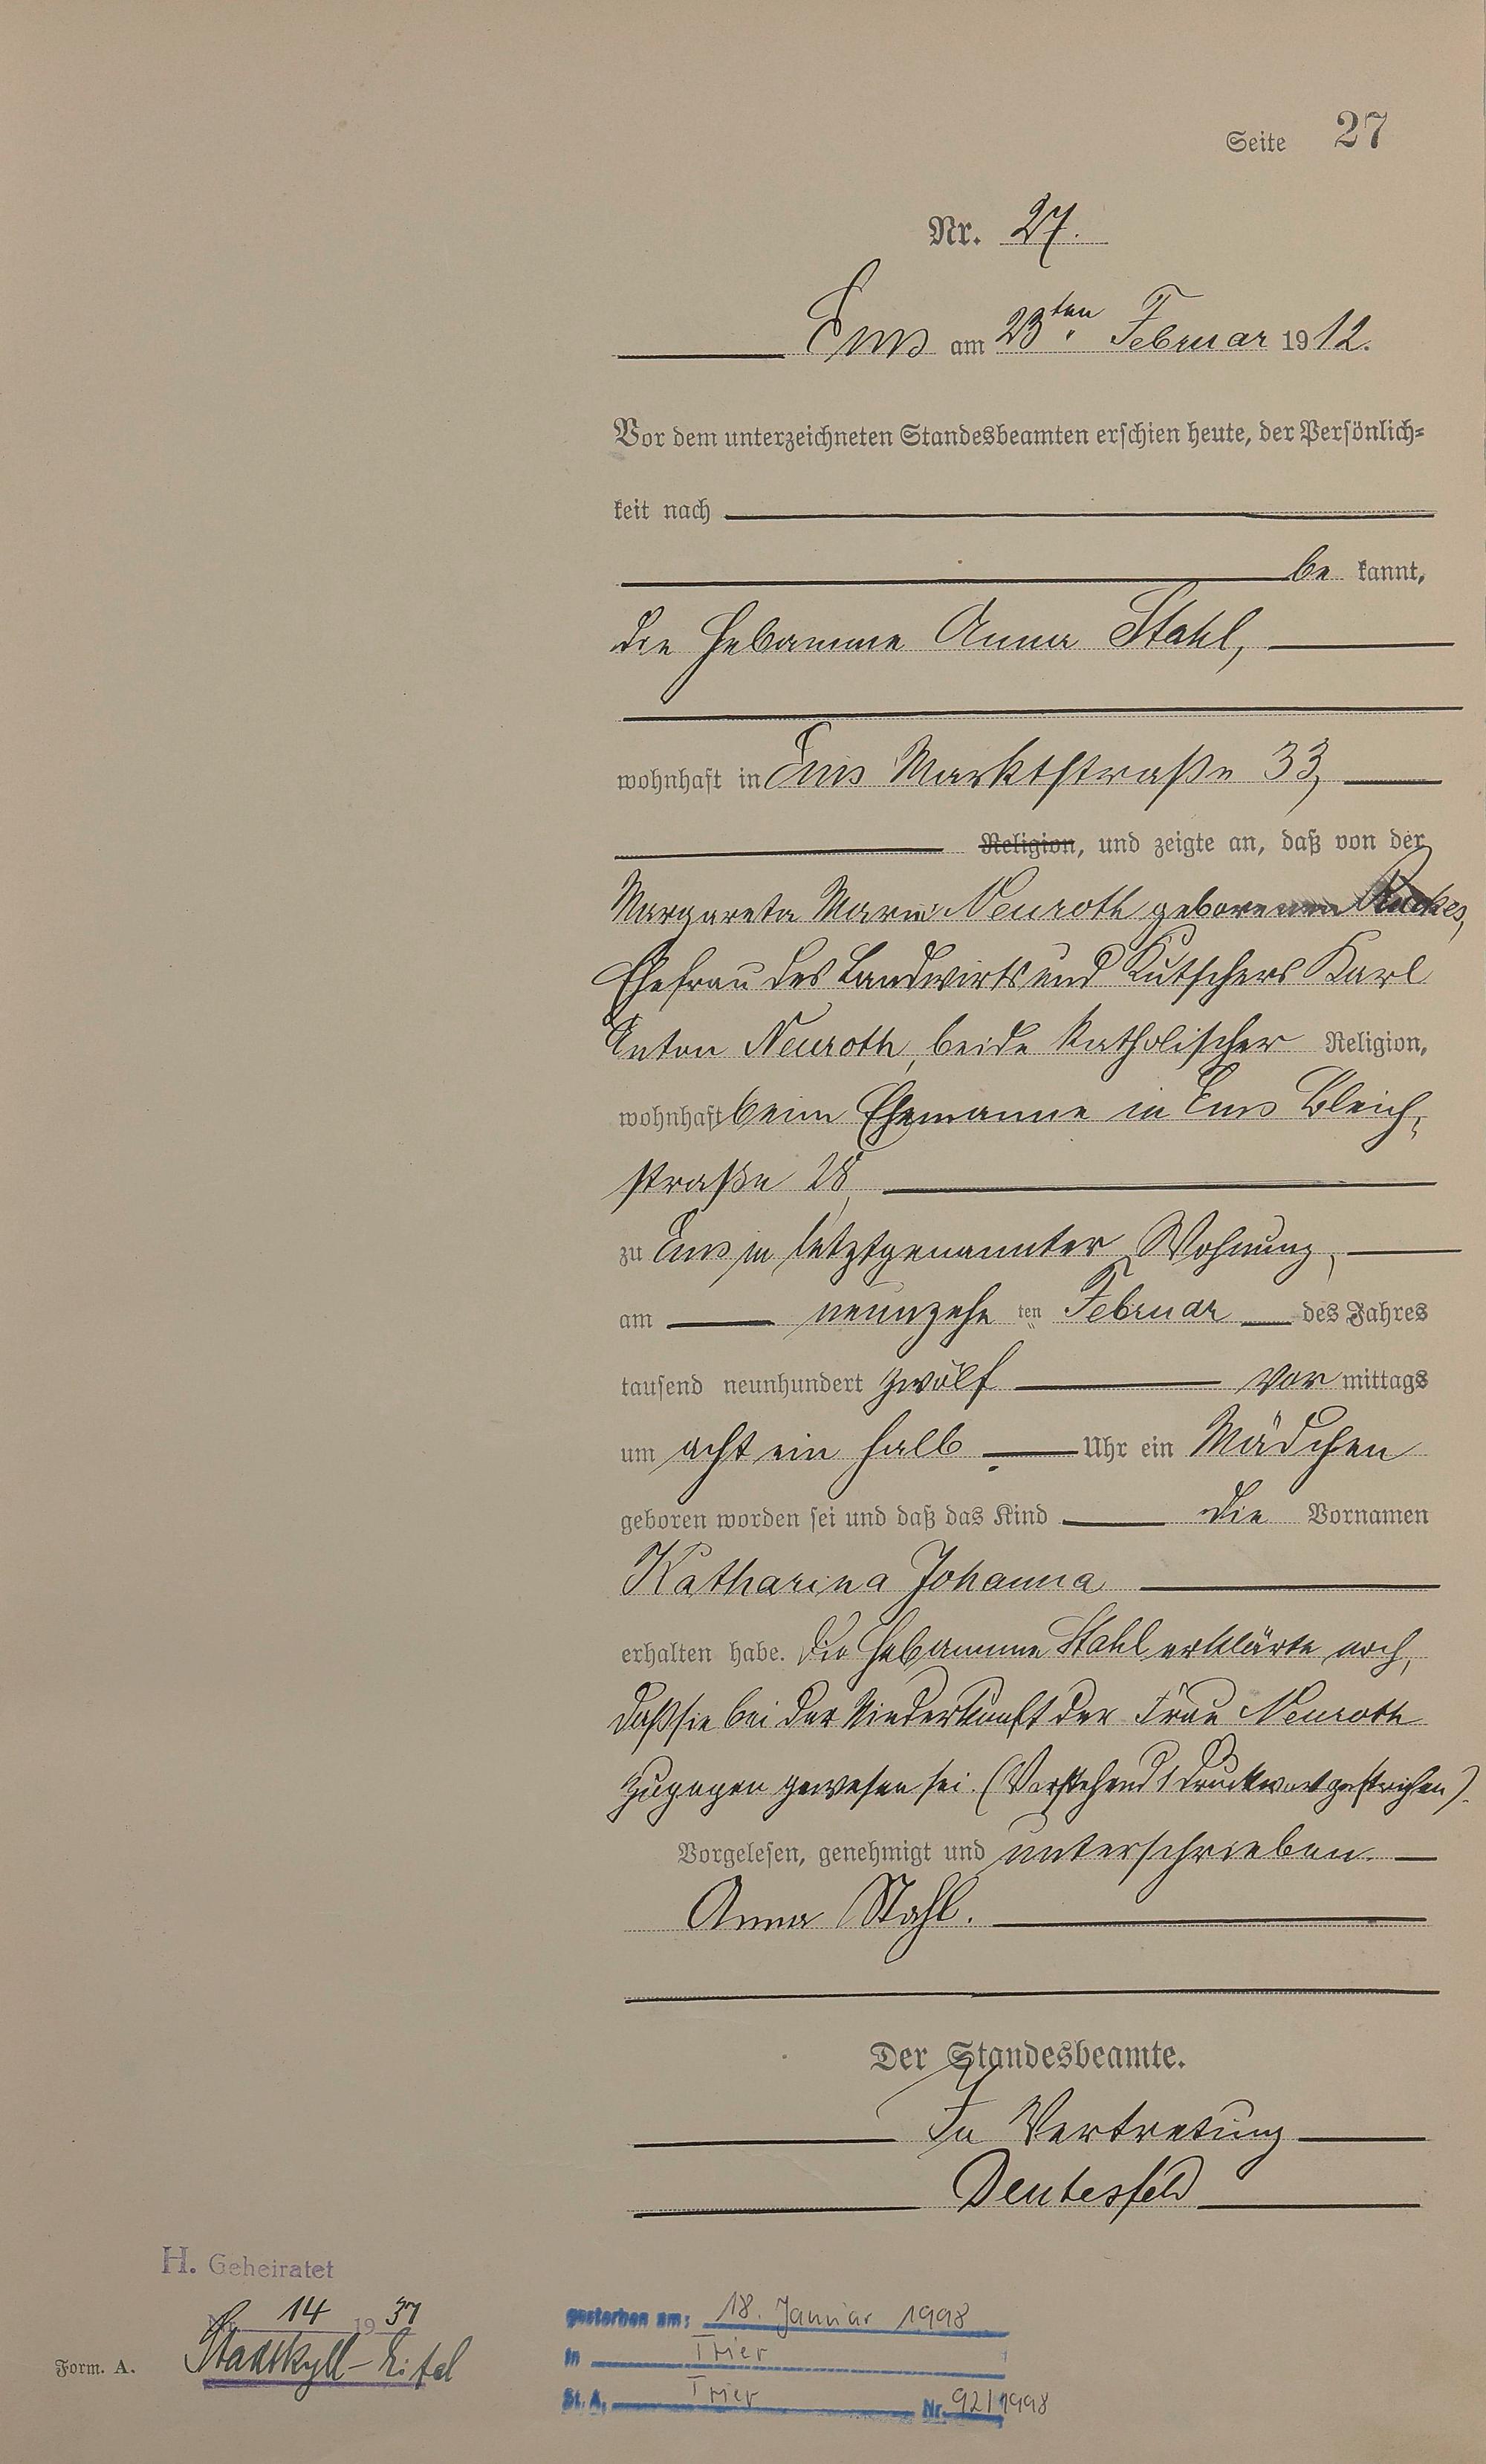 Seite 27
Nr. 27.
Ems am 23ten Februar 1912.
Vor dem unterzeichneten Standesbeamten erschien heute, der Persönlich=
keit nach
be kannt,
die Hebamme Anna Stahl,
wohnhaft in Ems Marktstraße 33,
Religion, und zeigte an, daß von der
Margareta Marie Neuroth geborenen
Ehefrau des Landwirts und Kutschers Karl
Anton Neuroth, beide katholischer Religion,
wohnhaft beim Ehemanne in Ems Bleich-
straße 28,
zu Ems in letztgenannter Wohnung,
am neunzehn ten Februar des Jahres
tausend neunhundert zwölf vor mittags
um acht ein halb Uhr ein Mädchen
geboren worden sei und daß das Kind die Vornamen
Katharina Johanna
erhalten habe. Die Hebamme Stahl erklärte noch,
daß sie bei der Niederkunft der Frau Neuroth
zugegen gewesen sei. (Vorstehend 1 Druckwort gestrichen).
Vorgelesen, genehmigt und unterschrieben.
Anna Stahl.
Der Standesbeamte.
In Vertretung
Deutesfeld
H. Geheiratet
Nr. 14 1937
Stadtkyll-Eifel
Form. A.
gestorben am: 18. Januar 1998
in Trier
St. A. Trier Nr. 92/1998